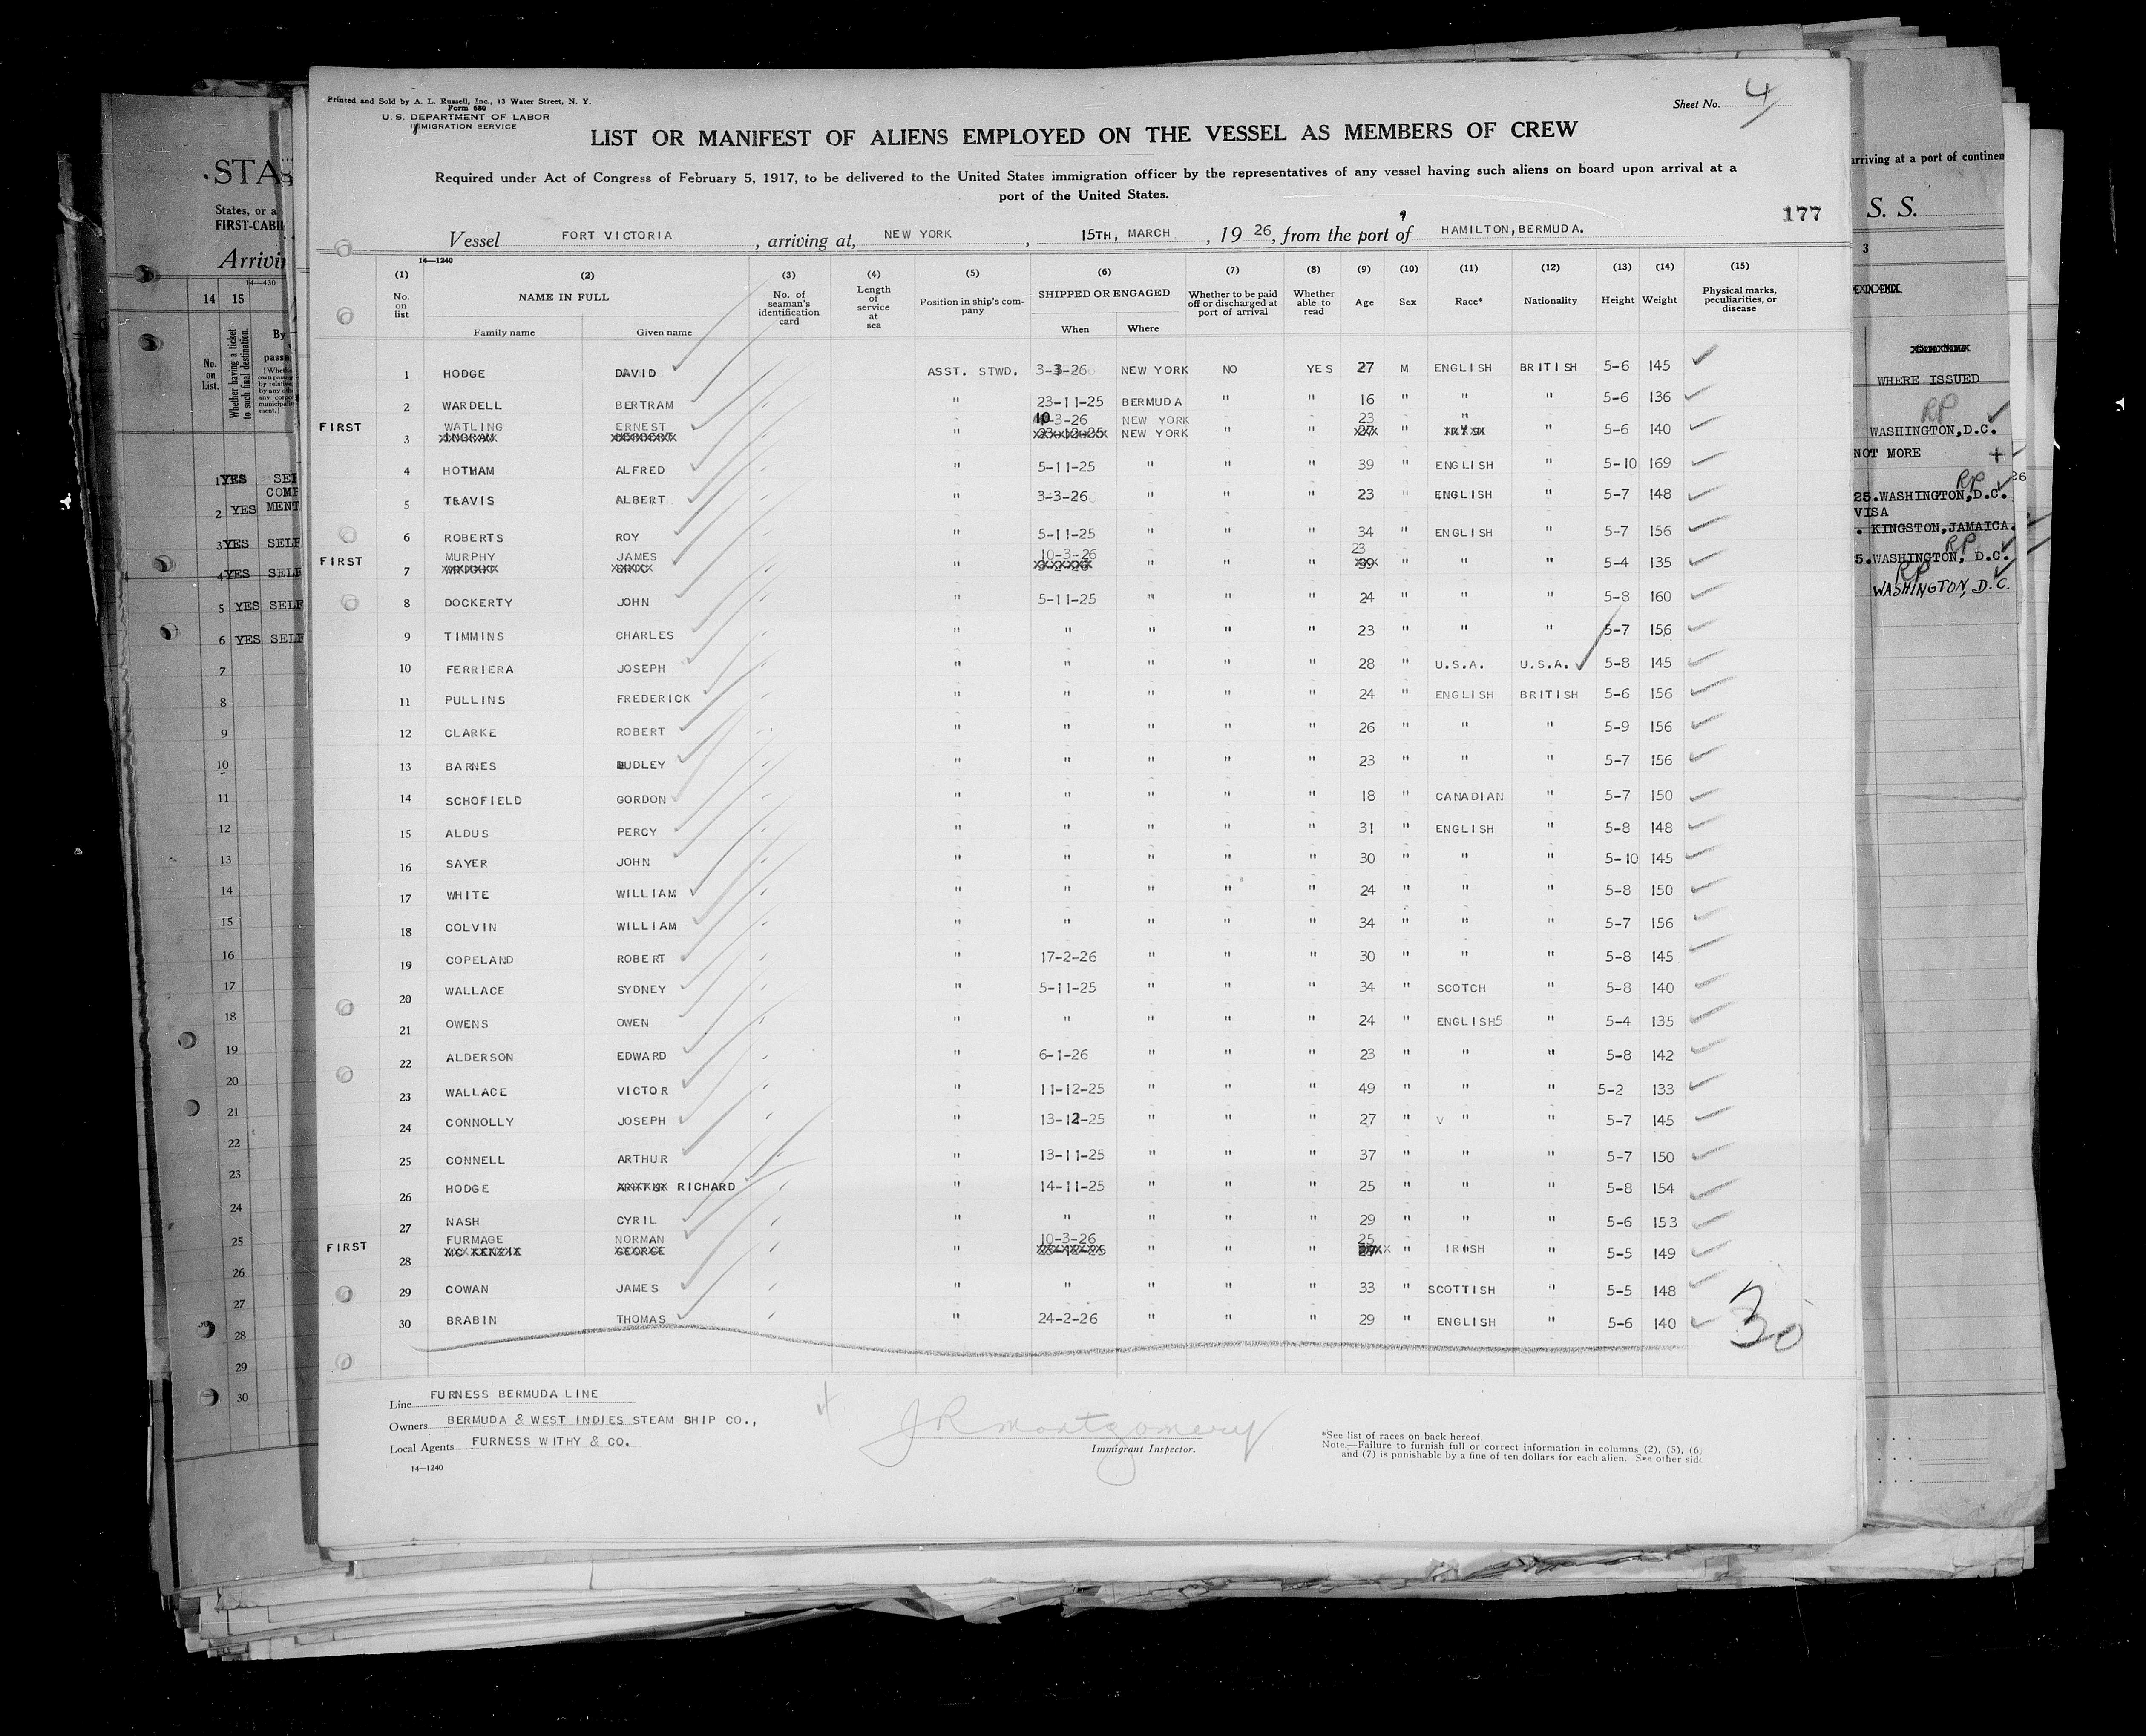 Printed and Sold by A. L. Russell, Inc., 13 Water Street, N. Y.
Form 680
U. S. DEPARTMENT OF LABOR
IMMIGRATION SERVICE
Sheet No. 4
LIST OR MANIFEST OF ALIENS EMPLOYED ON THE VESSEL AS MEMBERS OF CREW
Required under Act of Congress of February 5, 1917, to be delivered to the United States immigration officer by the representatives of any vessel having such aliens on board upon arrival at a
port of the United States.
177
Vessel FORT VICTORIA, arriving at, NEW YORK, 15TH, MARCH, 19 26, from the port of HAMILTON, BERMUDA.
14—1240
(1) No. on list (2) NAME IN FULL Family name Given name (3) No. of seaman's identification card (4) Length of service at sea (5) Position in ship's company (6) SHIPPED OR ENGAGED When Where (7) Whether to be paid off or discharged at port of arrival (8) Whether able to read (9) Age (10) Sex (11) Race* (12) Nationality (13) Height (14) Weight (15) Physical marks, peculiarities, or disease
1 HODGE DAVID ASST. STWD. 3-3-26 NEW YORK NO YES 27 M ENGLISH BRITISH 5-6 145
2 WARDELL BERTRAM " 23-11-25 BERMUDA " " 16 " " " 5-6 136
FIRST WATLING ERNEST 10-3-26 NEW YORK 23 "
3 " NEW YORK " " " " 5-6 140
4 HOTHAM ALFRED " 5-11-25 " " " 39 " ENGLISH " 5-10 169
5 TRAVIS ALBERT " 3-3-26 " " " 23 " ENGLISH " 5-7 148
6 ROBERTS ROY " 5-11-25 " " " 34 " ENGLISH " 5-7 156
FIRST MURPHY JAMES 10-3-26 23
7 " " " " " " " 5-4 135
8 DOCKERTY JOHN " 5-11-25 " " " 24 " " " 5-8 160
9 TIMMINS CHARLES " " " " " 23 " " " 5-7 156
10 FERRIERA JOSEPH " " " " " 28 " U.S.A. U.S.A. 5-8 145
11 PULLINS FREDERICK " " " " " 24 " ENGLISH BRITISH 5-6 156
12 CLARKE ROBERT " " " " " 26 " " " 5-9 156
13 BARNES DUDLEY " " " " " 23 " " " 5-7 156
14 SCHOFIELD GORDON " " " " " 18 " CANADIAN " 5-7 150
15 ALDUS PERCY " " " " " 31 " ENGLISH " 5-8 148
16 SAYER JOHN " " " " " 30 " " " 5-10 145
17 WHITE WILLIAM " " " " " 24 " " " 5-8 150
18 COLVIN WILLIAM " " " " " 34 " " " 5-7 156
19 COPELAND ROBERT " 17-2-26 " " " 30 " " " 5-8 145
20 WALLACE SYDNEY " 5-11-25 " " " 34 " SCOTCH " 5-8 140
21 OWENS OWEN " " " " " 24 " ENGLISH5 " 5-4 135
22 ALDERSON EDWARD " 6-1-26 " " " 23 " " " 5-8 142
23 WALLACE VICTOR " 11-12-25 " " " 49 " " " 5-2 133
24 CONNOLLY JOSEPH " 13-12-25 " " " 27 " V " " 5-7 145
25 CONNELL ARTHUR " 13-11-25 " " " 37 " " " 5-7 150
26 HODGE RICHARD " 14-11-25 " " " 25 " " " 5-8 154
27 NASH CYRIL " " " " " 29 " " " 5-6 153
FIRST FURMAGE NORMAN 10-3-26 25
28 MC KENZIE GEORGE " " " " " IRISH " 5-5 149
29 COWAN JAMES " " " " " 33 " SCOTTISH " 5-5 148
30 BRABIN THOMAS " 24-2-26 " " " 29 " ENGLISH " 5-6 140
30
Line FURNESS BERMUDA LINE
Owners BERMUDA & WEST INDIES STEAM SHIP CO.,
Local Agents FURNESS WITHY & CO.
14—1240
J R Montgomery
Immigrant Inspector.
*See list of races on back hereof.
Note.—Failure to furnish full or correct information in columns (2), (5), (6)
and (7) is punishable by a fine of ten dollars for each alien. See other side
STA
States, or a
FIRST-CABI
Arrivi
14—430
14 15
No. on List.
Whether having a ticket to such final destination.
By
1 YES SEL
COMP
2 YES MENT
3 YES SELF
4 YES SELF
5 YES SELF
6 YES SELF
7
8
9
10
11
12
13
14
15
16
17
18
19
20
21
22
23
24
25
26
27
28
29
30
arriving at a port of continen
S. S.
3
WHERE ISSUED
RP
WASHINGTON, D.C.
NOT MORE +
RP 26
25. WASHINGTON, D.C.
VISA
. KINGSTON, JAMAICA.
RP
5. WASHINGTON, D.C.
RP
WASHINGTON, D.C.